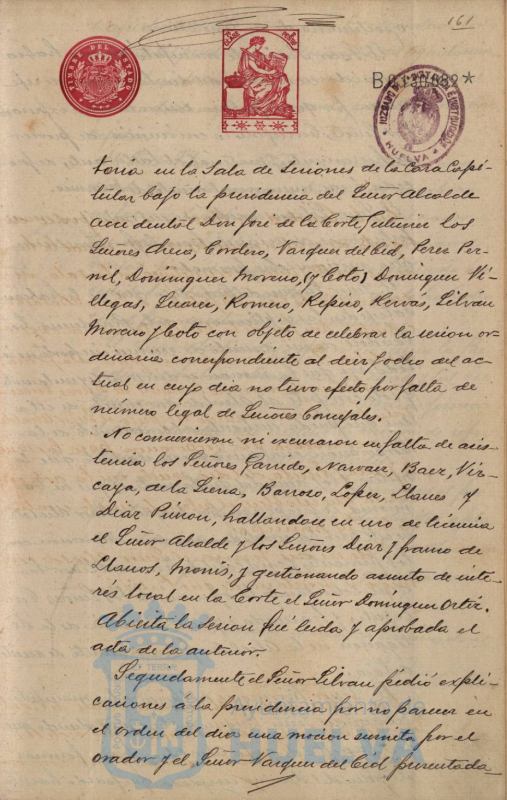 161
TIMBRE DEL ESTADO
B0130,082*
JUZGADO MUNICIPAL E INSTRUCCION
HUELVA
toria en la Sala de Seriones de la Casa Capi-
tular bajo la presidencia del Señor Alcalde
accidental Don José de la Corte Gutierrez los
Señores Checa, Cordero, Vazquez del Cid, Perez Per-
nil, Dominguez Moreno, (y Coto) Dominguez Vi-
llegas, Suarez, Romero, Repiso, Hervás, Gilván
Moreno y Coto con objeto de celebrar la sesion or-
dinaria correspondiente al diez y ocho del ac-
tual en cuyo dia no tuvo efecto por falta de
número legal de Señores Concejales.
No concurrieron ni excusaron su falta de asis-
tencia los Señores Garrido, Narvaez, Baez, Viz-
caya, de la Sierra, Barroso, Lopez, Llanes y
Diaz Pinzon, hallandose en uso de licencia
el Señor Alcalde y los Señores Diaz y franco de
Llanos, Monís, y gestionando asunto de inte-
rés local en la Corte el Señor Dominguez Ortiz.
Abierta la sesion fué leida y aprobada el
acta de la anterior.
Seguidamente el Señor Gilvan pidió expli-
caciones á la presidencia por no parecer en
el orden del dia una mocion suscrita por el
orador y el Señor Vazquez del Cid presentada
HUELVA